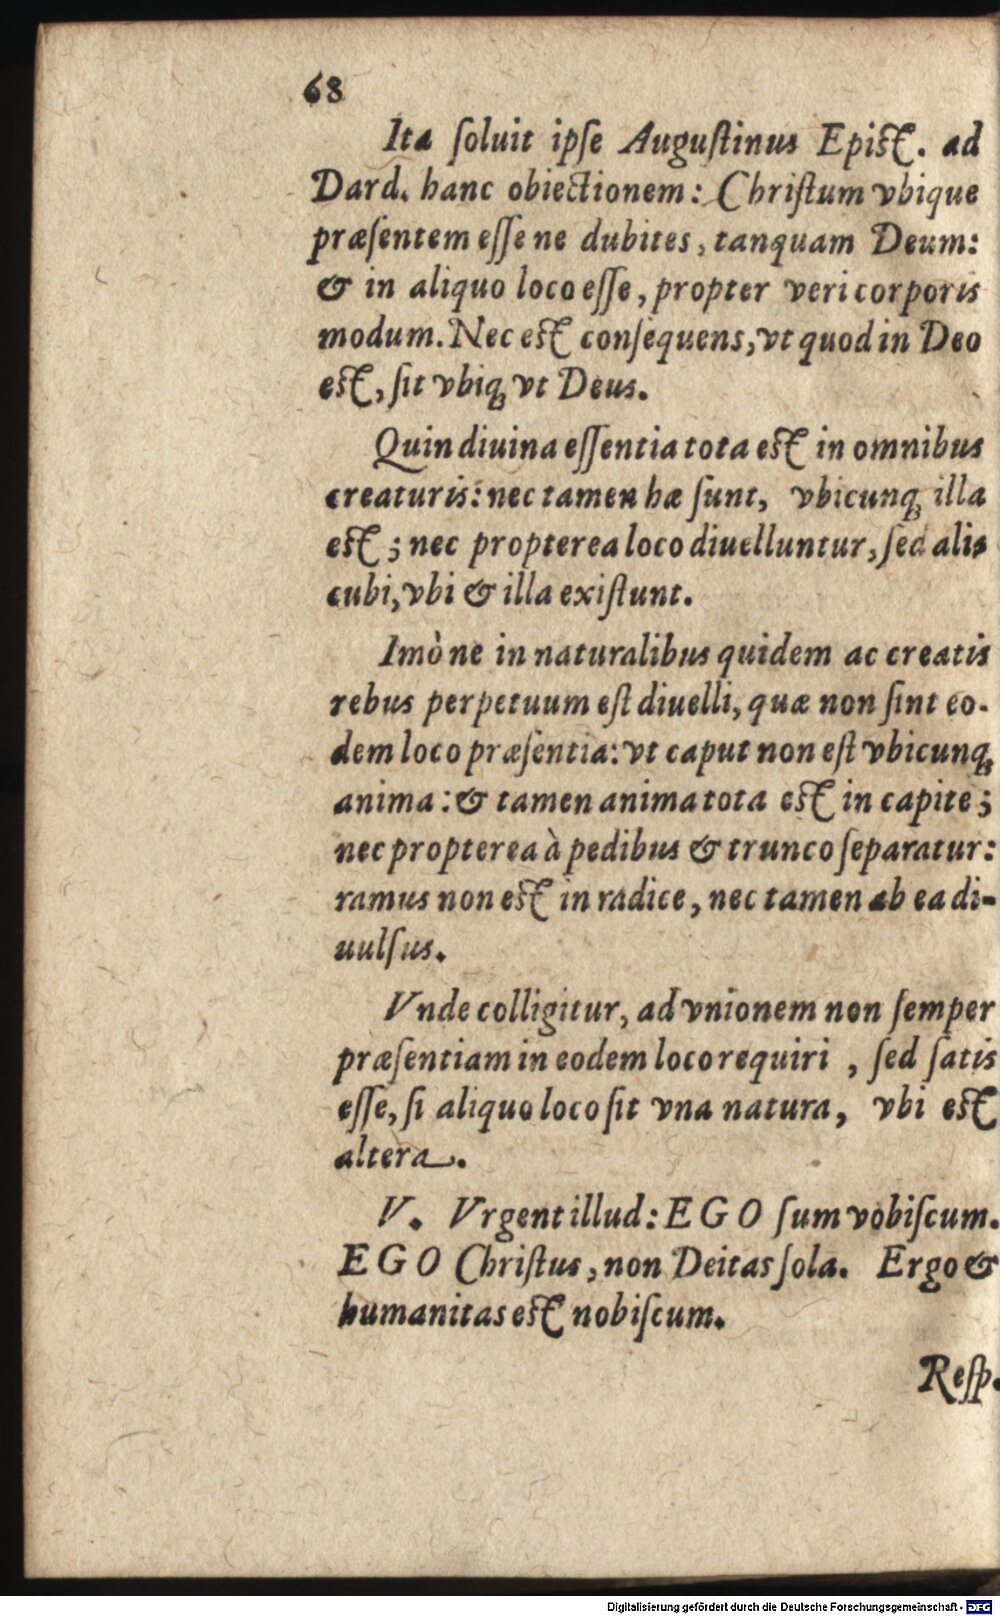 68
Ita ſoluit ipſe Auguſtinus Epiſt. ad
Dard. hanc obiectionem: Chriſtum vbique
præſentem eſſe ne dubites, tanquam Deum:
& in aliquo loco eſſe, propter veri corporis
modum. Nec eſt conſequens, vt quod in Deo
eſt, ſit vbiq; vt Deus.
Quin diuina eſſentia tota eſt in omnibus
creaturis: nec tamen hæ ſunt, vbicunq; illa
eſt; nec propterea loco diuelluntur, ſed ali-
cubi, vbi & illa exiſtunt.
Imò ne in naturalibus quidem ac creatis
rebus perpetuum eſt diuelli, quæ non ſint eo-
dem loco præſentia: vt caput non eſt vbicunq;
anima: & tamen anima tota eſt in capite;
nec propterea à pedibus & trunco ſeparatur:
ramus non eſt in radice, nec tamen ab ea di-
uulſus.
Vnde colligitur, ad vnionem non ſemper
præſentiam in eodem loco requiri , ſed ſatis
eſſe, ſi aliquo loco ſit vna natura, vbi eſt
altera.
V. Vrgent illud: EGO ſum vobiſcum.
EGO Chriſtus, non Deitas ſola. Ergo &
humanitas eſt nobiſcum.
Reſp.
Digitalisierung gefördert durch die Deutsche Forschungsgemeinschaft - DFG